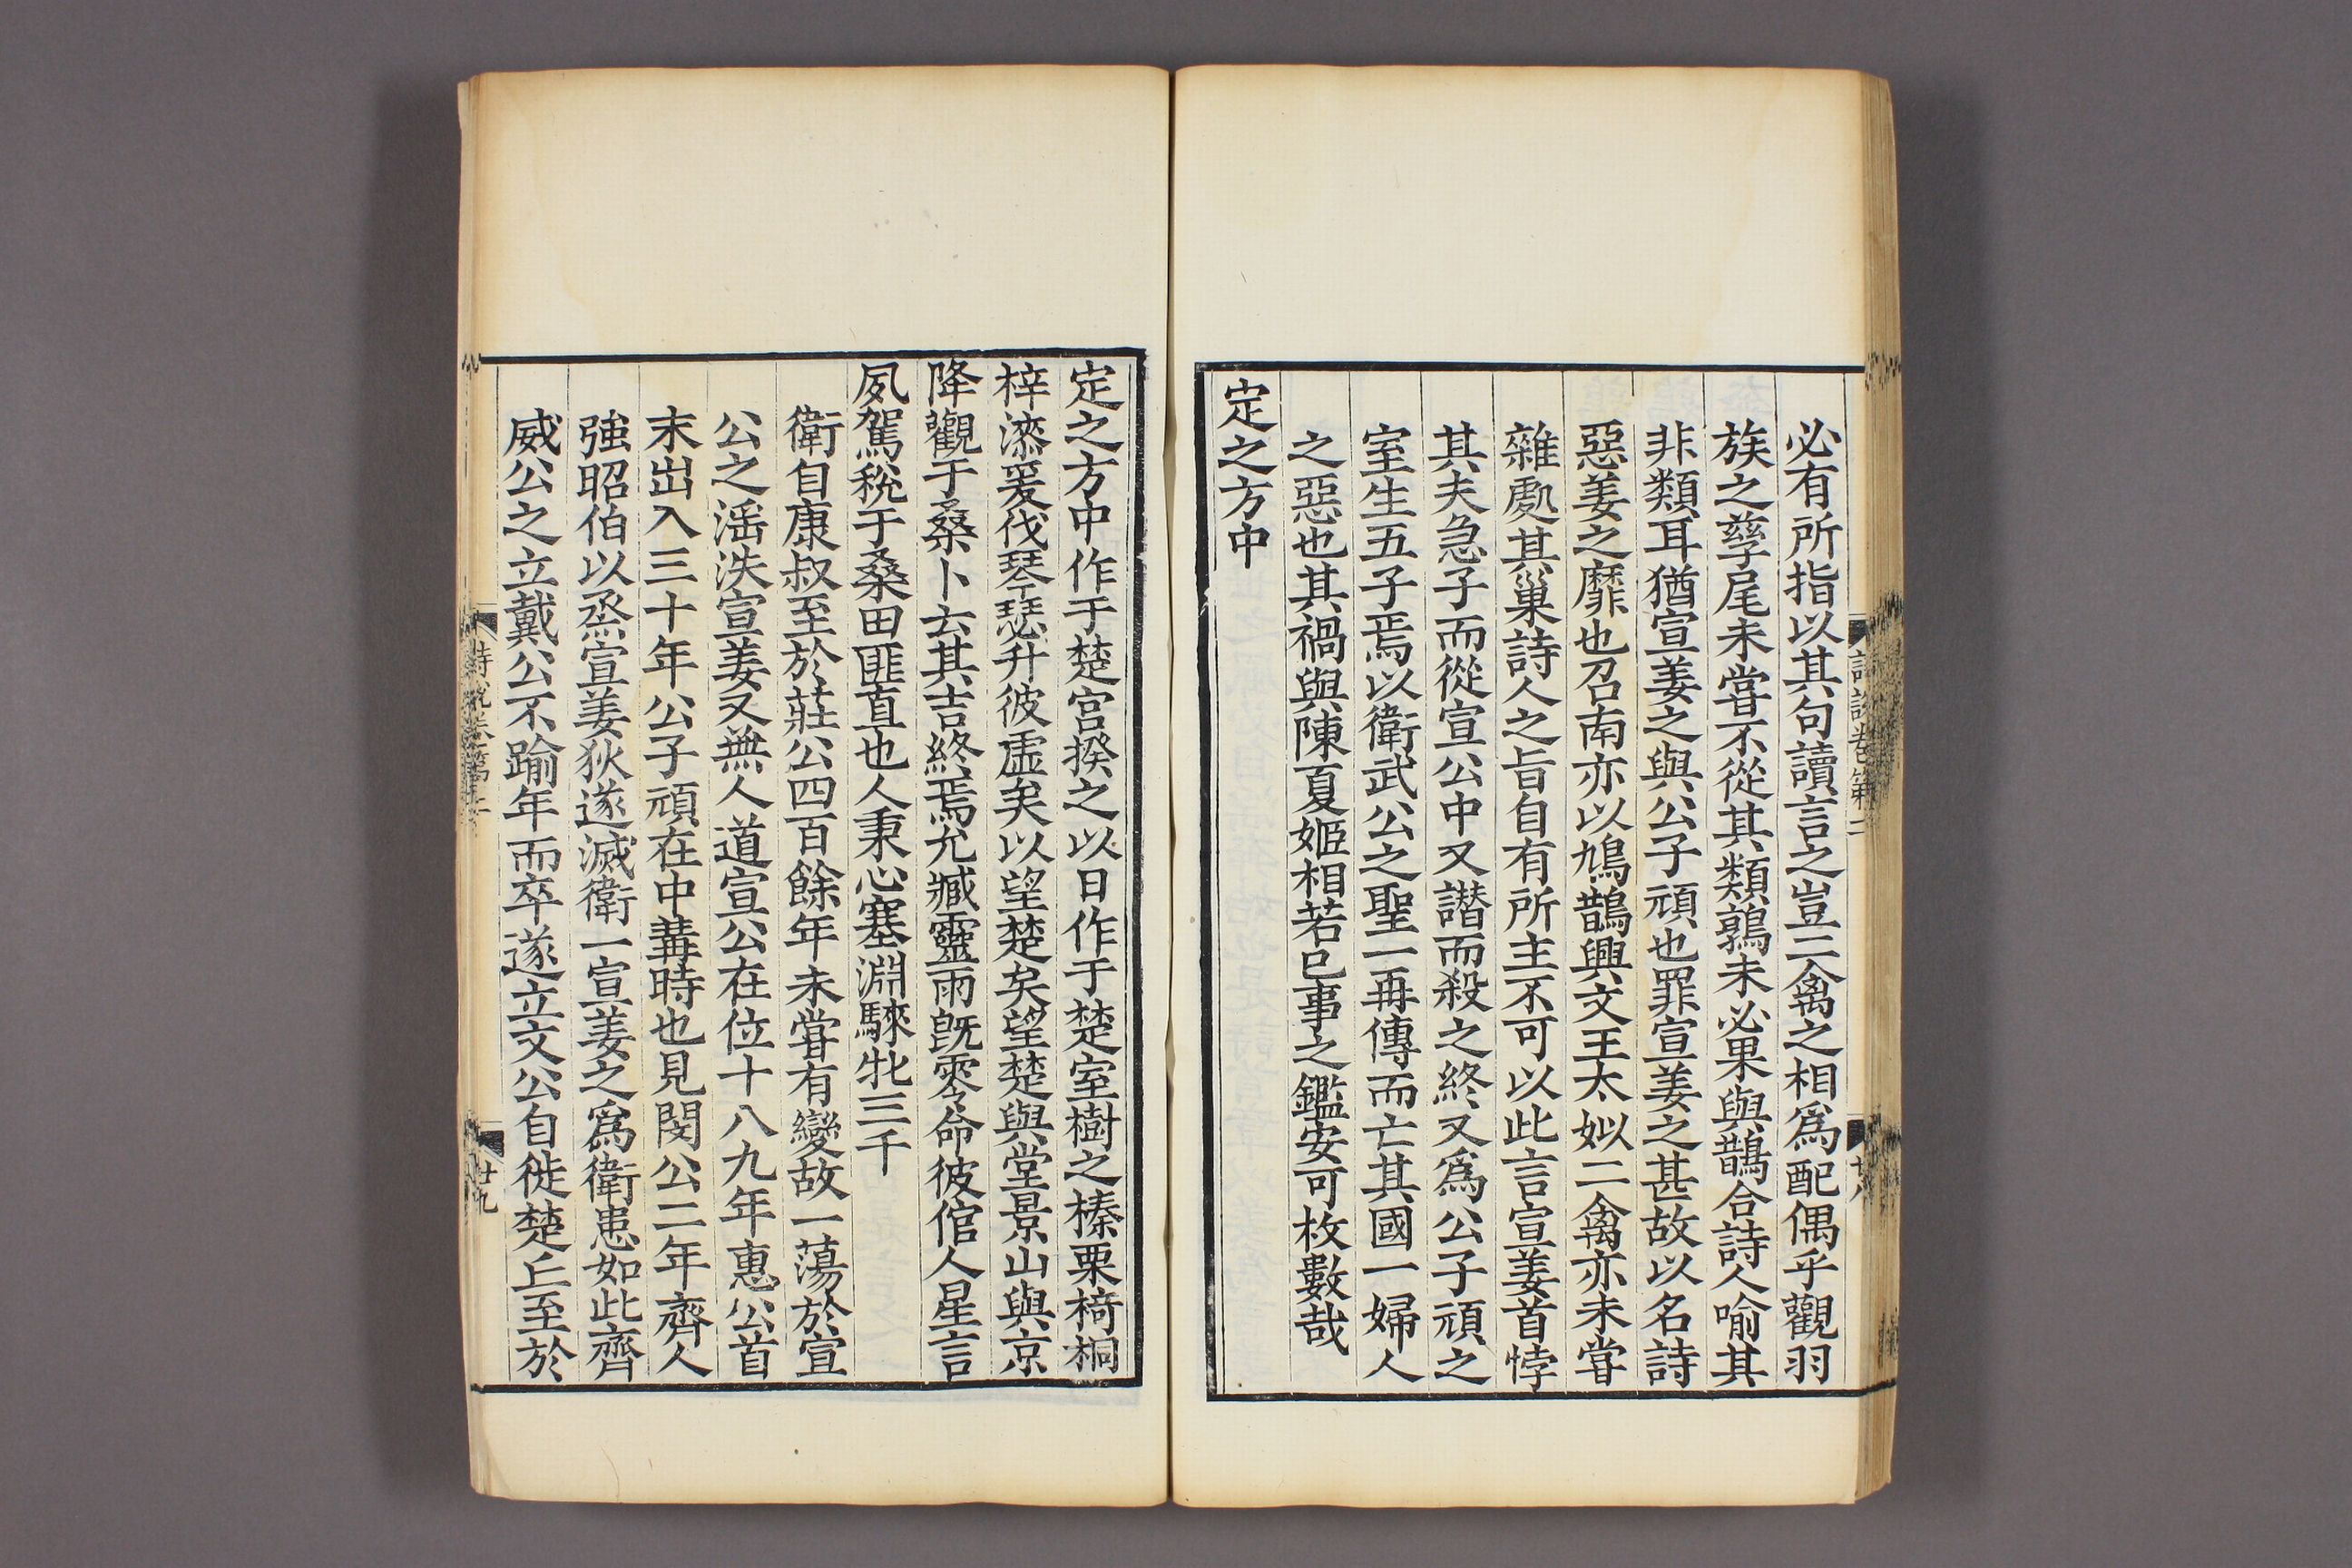 必有所指以其句讀言之豈二禽之相爲配偶乎觀羽
族之孳尾未嘗不從其類鶉未必果與鵲合詩人喻其
非類耳猶宣姜之與公子頑也罪宣姜之甚故以名詩
惡姜之靡也召南亦以鳩鵲興文王太姒二禽亦未嘗
雜處其巢詩人之旨自有所主不可以此言宣姜首悖
其夫急子而從宣公中又譖而殺之終又爲公子頑之
室生五子焉以衛武公之聖一再傳而亡其國一婦人
之惡也其禍與陳夏姬相若已事之鑑安可枚數哉
定之方中
詩說卷第二
廿八
定之方中作于楚宮揆之以日作于楚室樹之榛栗椅桐
梓漆爰伐琴瑟升彼虛矣以望楚矣望楚與堂景山與京
降觀于桑卜云其吉終焉允臧靈雨既零命彼倌人星言
夙駕稅于桑田匪直也人秉心塞淵騋牝三千
衛自康叔至於莊公四百餘年未嘗有變故一蕩於宣
公之滛泆宣姜又無人道宣公在位十八九年惠公首
末出入三十年公子頑在中冓時也見閔公二年齊人
強昭伯以烝宣姜狄遂滅衛一宣姜之爲衛患如此齊
威公之立戴公不踰年而卒遂立文公自徙楚丘至於
詩說卷第二
廿九